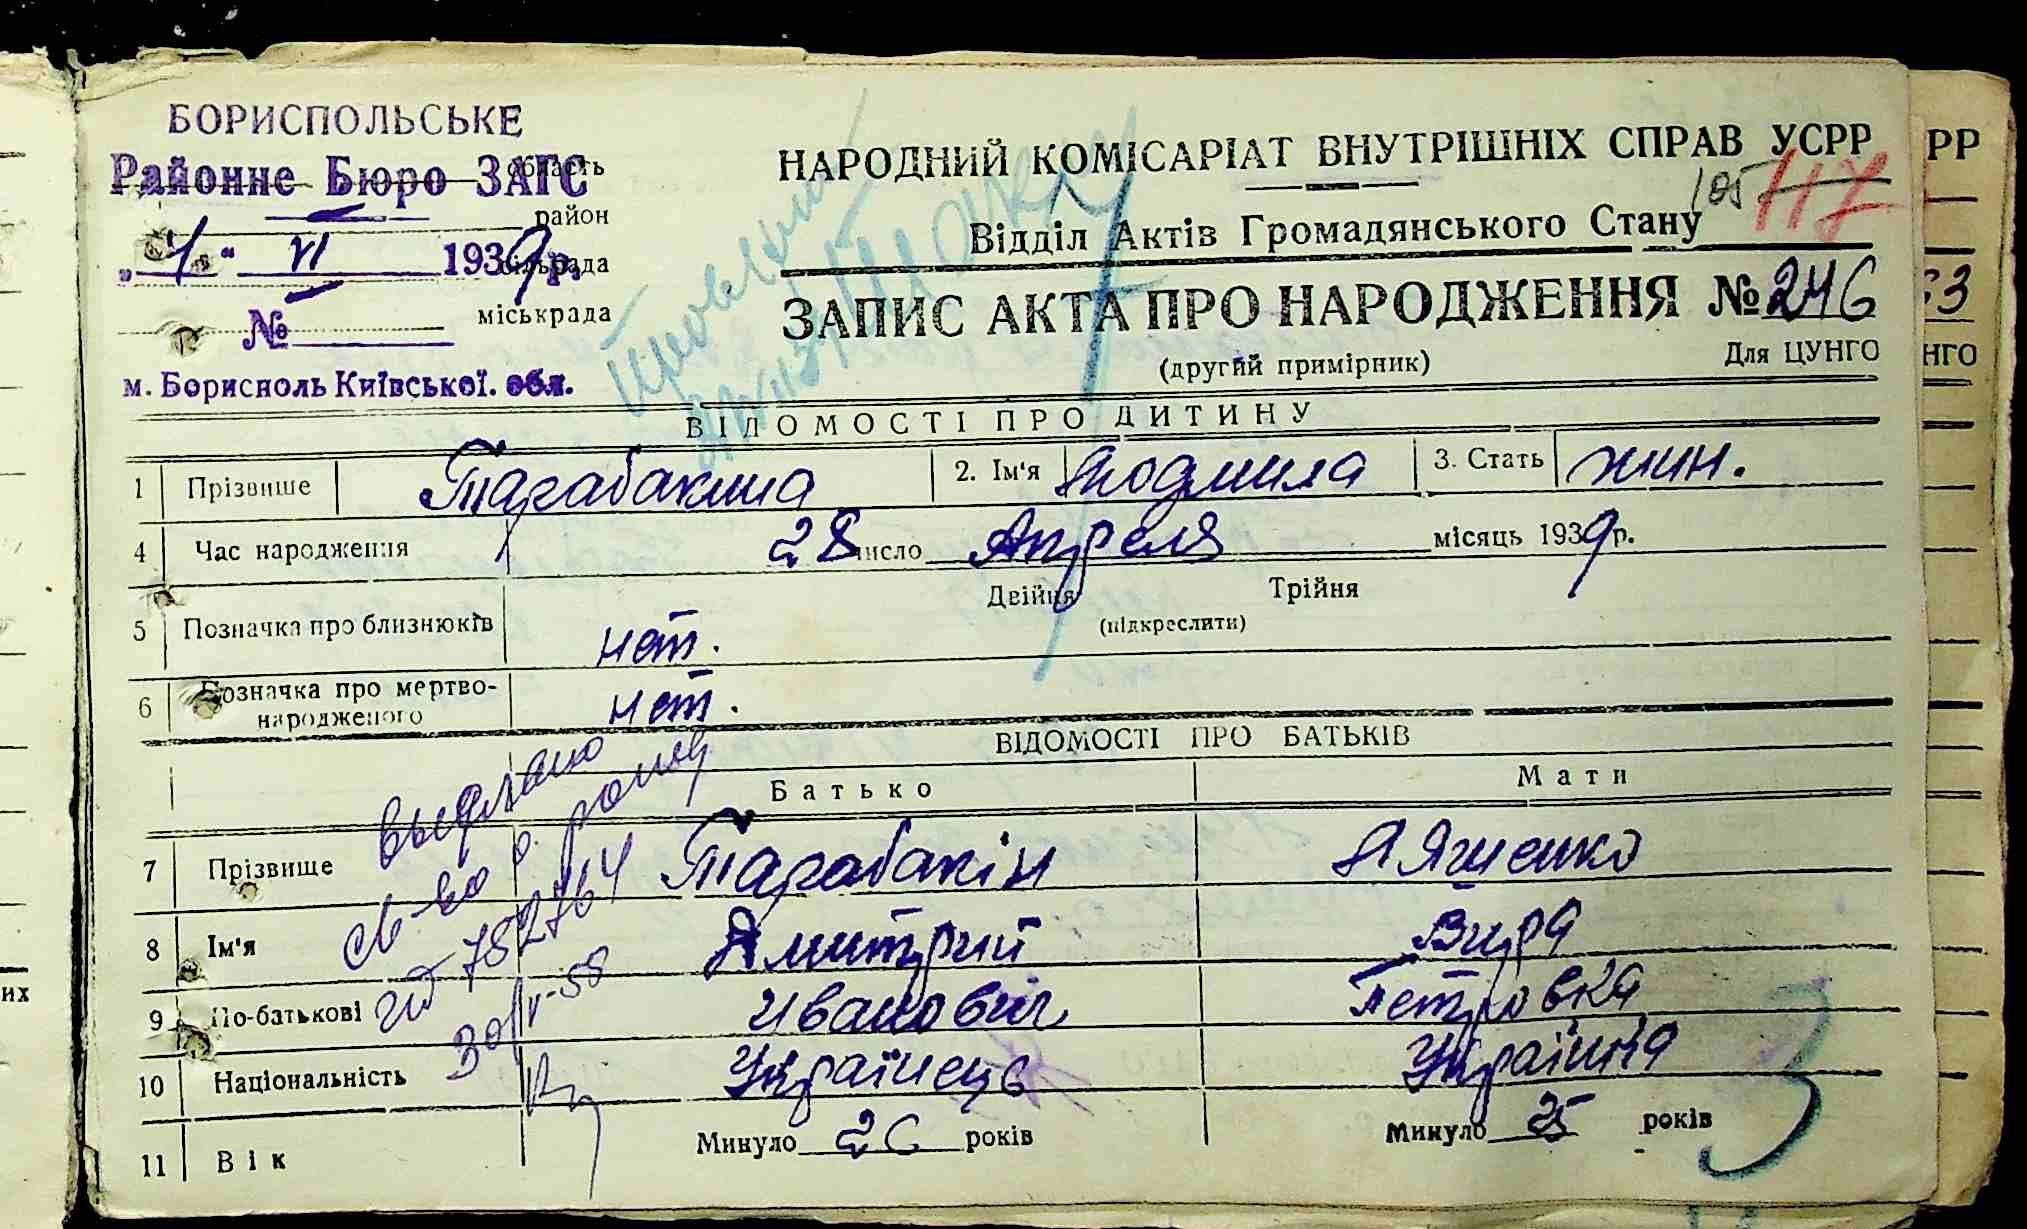 БОРИСПОЛЬСЬКЕ
Районне Бюро ЗАГС
область
район
„4“ VI 1939р.
сільрада
№
міськрада
м. Бориспіль Київської. обл.
НАРОДНИЙ КОМІСАРІАТ ВНУТРІШНІХ СПРАВ УСРР
105 117
Відділ Актів Громадянського Стану
ЗАПИС АКТА ПРО НАРОДЖЕННЯ № 246
(другий примірник)
Для ЦУНГО
ВІДОМОСТІ ПРО ДИТИНУ
1 Прізвище Тарабакина 2. Ім'я Людмила 3. Стать жин.
4 Час народження 28 число Апреля місяць 1939р.
5 Позначка про близнюків нет. Двійня Трійня
(підкреслити)
6 Позначка про мертво-
народженого нет.
ВІДОМОСТІ ПРО БАТЬКІВ
Батько Мати
7 Прізвище Тарабакін Ляшенко
8 Ім'я Дмитрий Вира
9 По-батькові Иванович Петровна
10 Національність Українець Українка
11 Вік Минуло 26 років Минуло 25 років
выдано
св-во о рожд
782764
30/V-58
3
РР
53
НГО
их